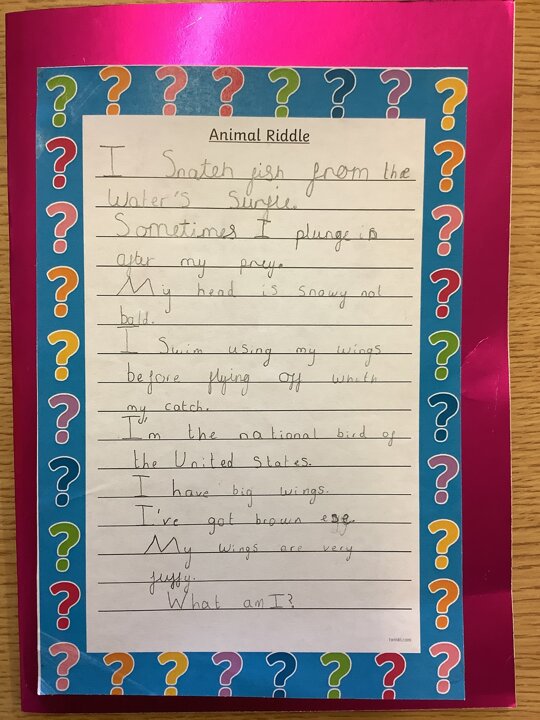 Animal Riddle
I Snatch fish from the
Water's Surfie.
Sometimes I plunge in
after my prey.
My head is snowy not
bald.
I Swim using my wings
before flying off whith
my catch.
I'm the national bird of
the United States.
I have big wings.
I've got brown
My wings are very
fuffy.
What am I?
twinkl.com